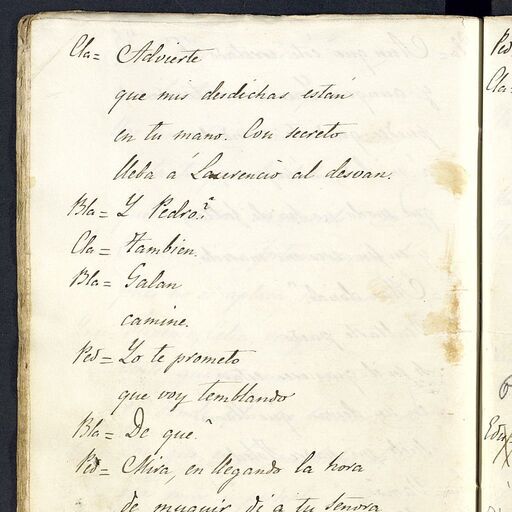 Cla= Advierte
que mis desdichas están
en tu mano. Con secreto
lleba á Laurencio al desvan.
Bla= Y Pedro?
Cla= Tambien.
Bla= Galan
camine.
Ped= Yo te prometo
que voy temblando
Bla= De que?
Ped= Mira, en llegando la hora
de muquir di á tu señora
Ped
Cla=